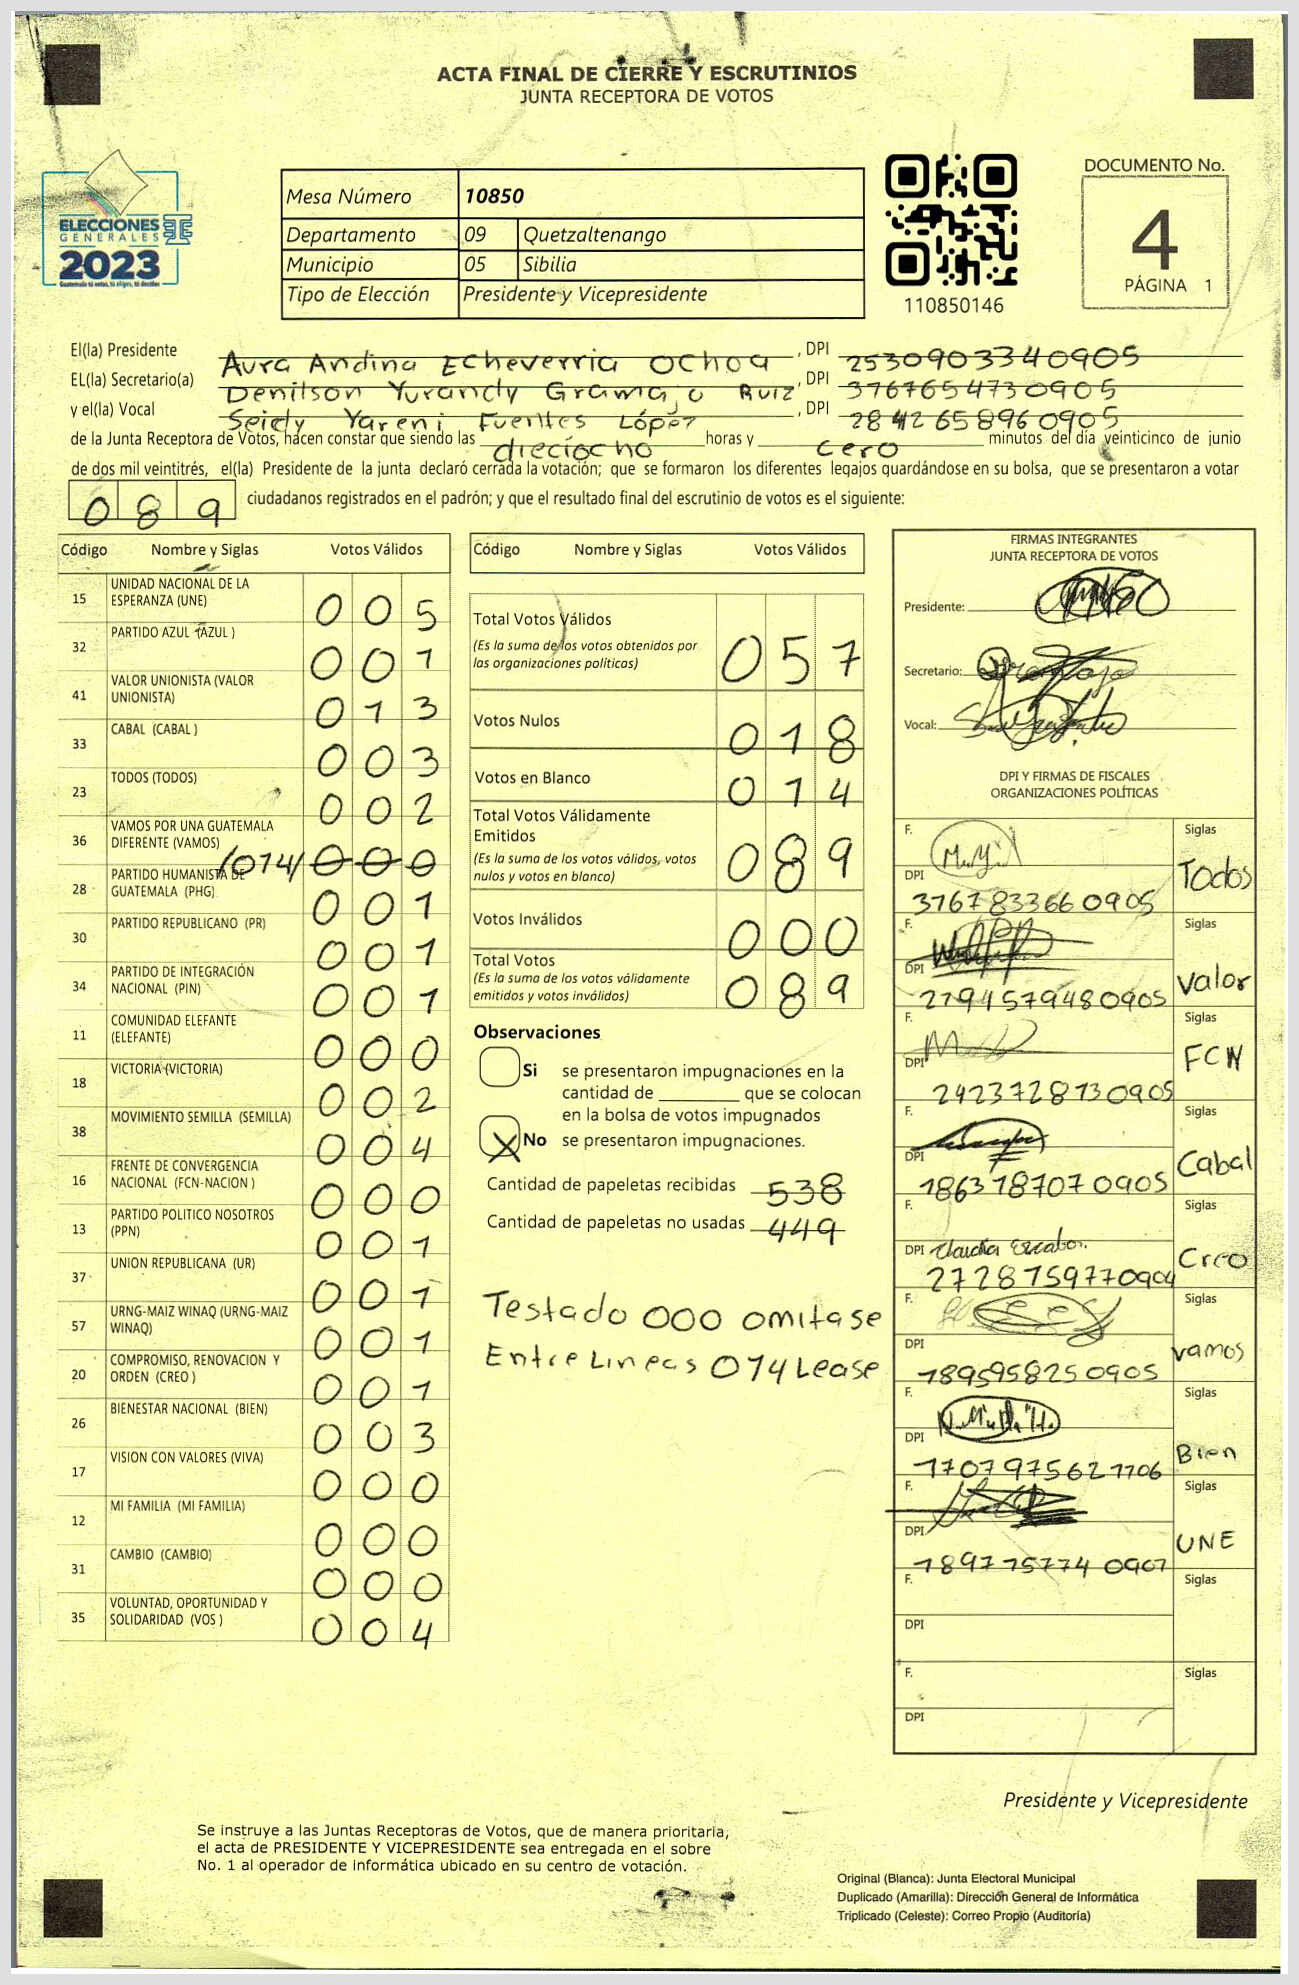 ACTA FINAL DE CIERRE Y ESCRUTINIOS
JUNTA RECEPTORA DE VOTOS
ELECCIONES
GENERALES
2023
Guatemala tú votas, tú eliges, tú decides
Mesa Número 10850
Departamento 09 Quetzaltenango
Municipio 05 Sibilia
Tipo de Elección Presidente y Vicepresidente
110850146
DOCUMENTO No.
4
PÁGINA 1
El(la) Presidente Aura Andina Echeverria Ochoa, DPI 2530903340905
EL(la) Secretario(a) Denilson Yurandy Gramajo Ruiz, DPI 3767654730905
y el(la) Vocal Seidy Yareni Fuentes López, DPI 2842658960905
de la Junta Receptora de Votos, hacen constar que siendo las dieciocho horas y cero minutos del día veinticinco de junio
de dos mil veintitrés, el(la) Presidente de la junta declaró cerrada la votación; que se formaron los diferentes legajos guardándose en su bolsa, que se presentaron a votar
089 ciudadanos registrados en el padrón; y que el resultado final del escrutinio de votos es el siguiente:
Código Nombre y Siglas Votos Válidos
15 UNIDAD NACIONAL DE LA ESPERANZA (UNE) 005
32 PARTIDO AZUL (AZUL ) 001
41 VALOR UNIONISTA (VALOR UNIONISTA) 013
33 CABAL (CABAL ) 003
23 TODOS (TODOS) 002
36 VAMOS POR UNA GUATEMALA DIFERENTE (VAMOS) /014/ 000
28 PARTIDO HUMANISTA DE GUATEMALA (PHG) 001
30 PARTIDO REPUBLICANO (PR) 001
34 PARTIDO DE INTEGRACIÓN NACIONAL (PIN) 001
11 COMUNIDAD ELEFANTE (ELEFANTE) 000
18 VICTORIA (VICTORIA) 002
38 MOVIMIENTO SEMILLA (SEMILLA) 004
16 FRENTE DE CONVERGENCIA NACIONAL (FCN-NACION ) 000
13 PARTIDO POLITICO NOSOTROS (PPN) 001
37 UNION REPUBLICANA (UR) 001
57 URNG-MAIZ WINAQ (URNG-MAIZ WINAQ) 001
20 COMPROMISO, RENOVACION Y ORDEN (CREO ) 001
26 BIENESTAR NACIONAL (BIEN) 003
17 VISION CON VALORES (VIVA) 000
12 MI FAMILIA (MI FAMILIA) 000
31 CAMBIO (CAMBIO) 000
35 VOLUNTAD, OPORTUNIDAD Y SOLIDARIDAD (VOS ) 004
Código Nombre y Siglas Votos Válidos
Total Votos Válidos 057
(Es la suma de los votos obtenidos por
las organizaciones políticas)
Votos Nulos 018
Votos en Blanco 014
Total Votos Válidamente
Emitidos 089
(Es la suma de los votos válidos, votos
nulos y votos en blanco)
Votos Inválidos 000
Total Votos 089
(Es la suma de los votos válidamente
emitidos y votos inválidos)
Observaciones
Si se presentaron impugnaciones en la
cantidad de ________ que se colocan
en la bolsa de votos impugnados
X No se presentaron impugnaciones.
Cantidad de papeletas recibidas 538
Cantidad de papeletas no usadas 449
Testado 000 omitase
Entre Lineas 014 Lease
FIRMAS INTEGRANTES
JUNTA RECEPTORA DE VOTOS
Presidente:
Secretario:
Vocal:
DPI Y FIRMAS DE FISCALES
ORGANIZACIONES POLÍTICAS
F. Siglas
DPI 3767833660905 Todos
F. Siglas
DPI 2794579480905 Valor
F. Siglas
DPI 2423728730905 FCN
F. Siglas
DPI 1863787070905 Cabal
F. Siglas
DPI Claudia Escobar. Creo
2728759770904
F. Siglas
DPI 1895958250905 vamos
F. Siglas
DPI 1707975621706 Bien
F. Siglas
DPI 1897757740907 UNE
F. Siglas
DPI
F. Siglas
DPI
Presidente y Vicepresidente
Se instruye a las Juntas Receptoras de Votos, que de manera prioritaria,
el acta de PRESIDENTE Y VICEPRESIDENTE sea entregada en el sobre
No. 1 al operador de informática ubicado en su centro de votación.
Original (Blanca): Junta Electoral Municipal
Duplicado (Amarilla): Dirección General de Informática
Triplicado (Celeste): Correo Propio (Auditoría)